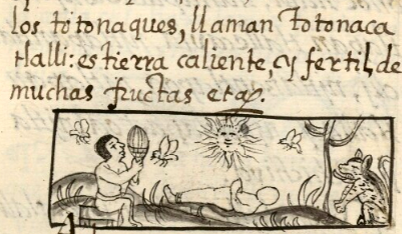 los totonaques, llaman totonaca
tlalli: es tierra caliente, y fertil, de
muchas fructas etc̃.